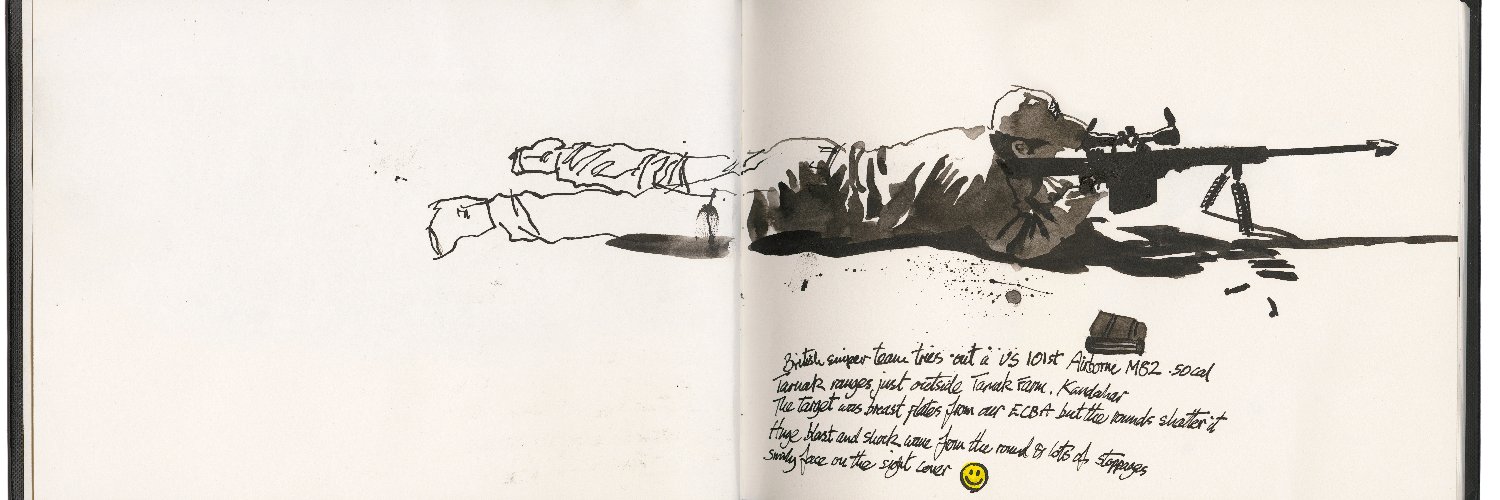 British sniper team tries out a US 101st Airborne M82 .50cal
Tarnak ranges just outside Tarnak Farm, Kandahar
The target was breast plates from our ECBA but the rounds shatter it
Huge blast and shock wave from the round & lots of stoppages
smily face on the sight cover